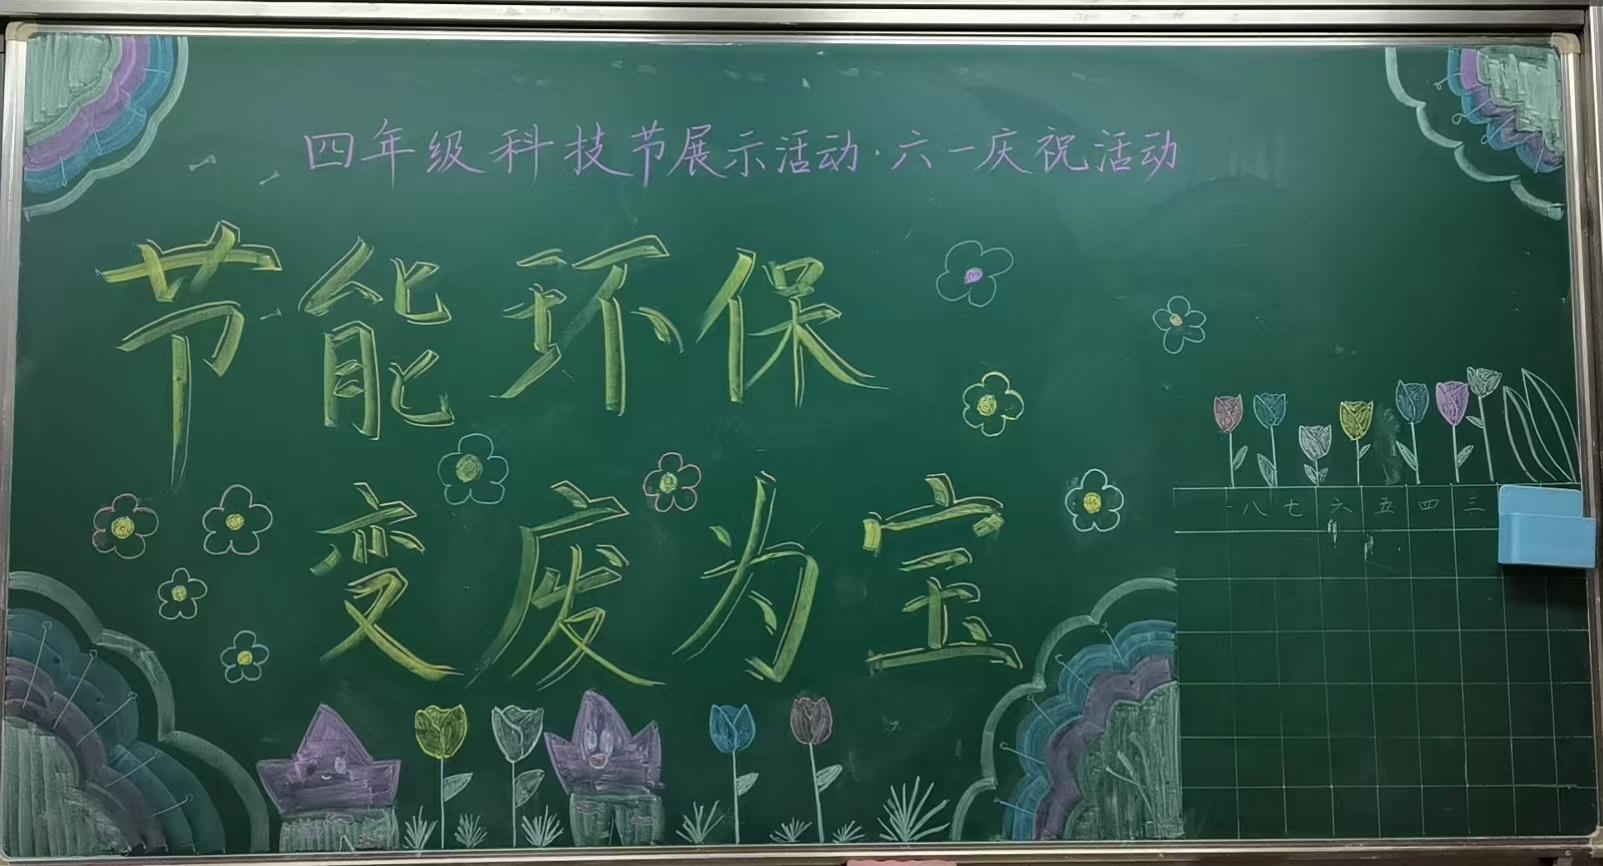 四年级科技节展示活动·六一庆祝活动
节能环保
变废为宝
八 七 六 五 四 三